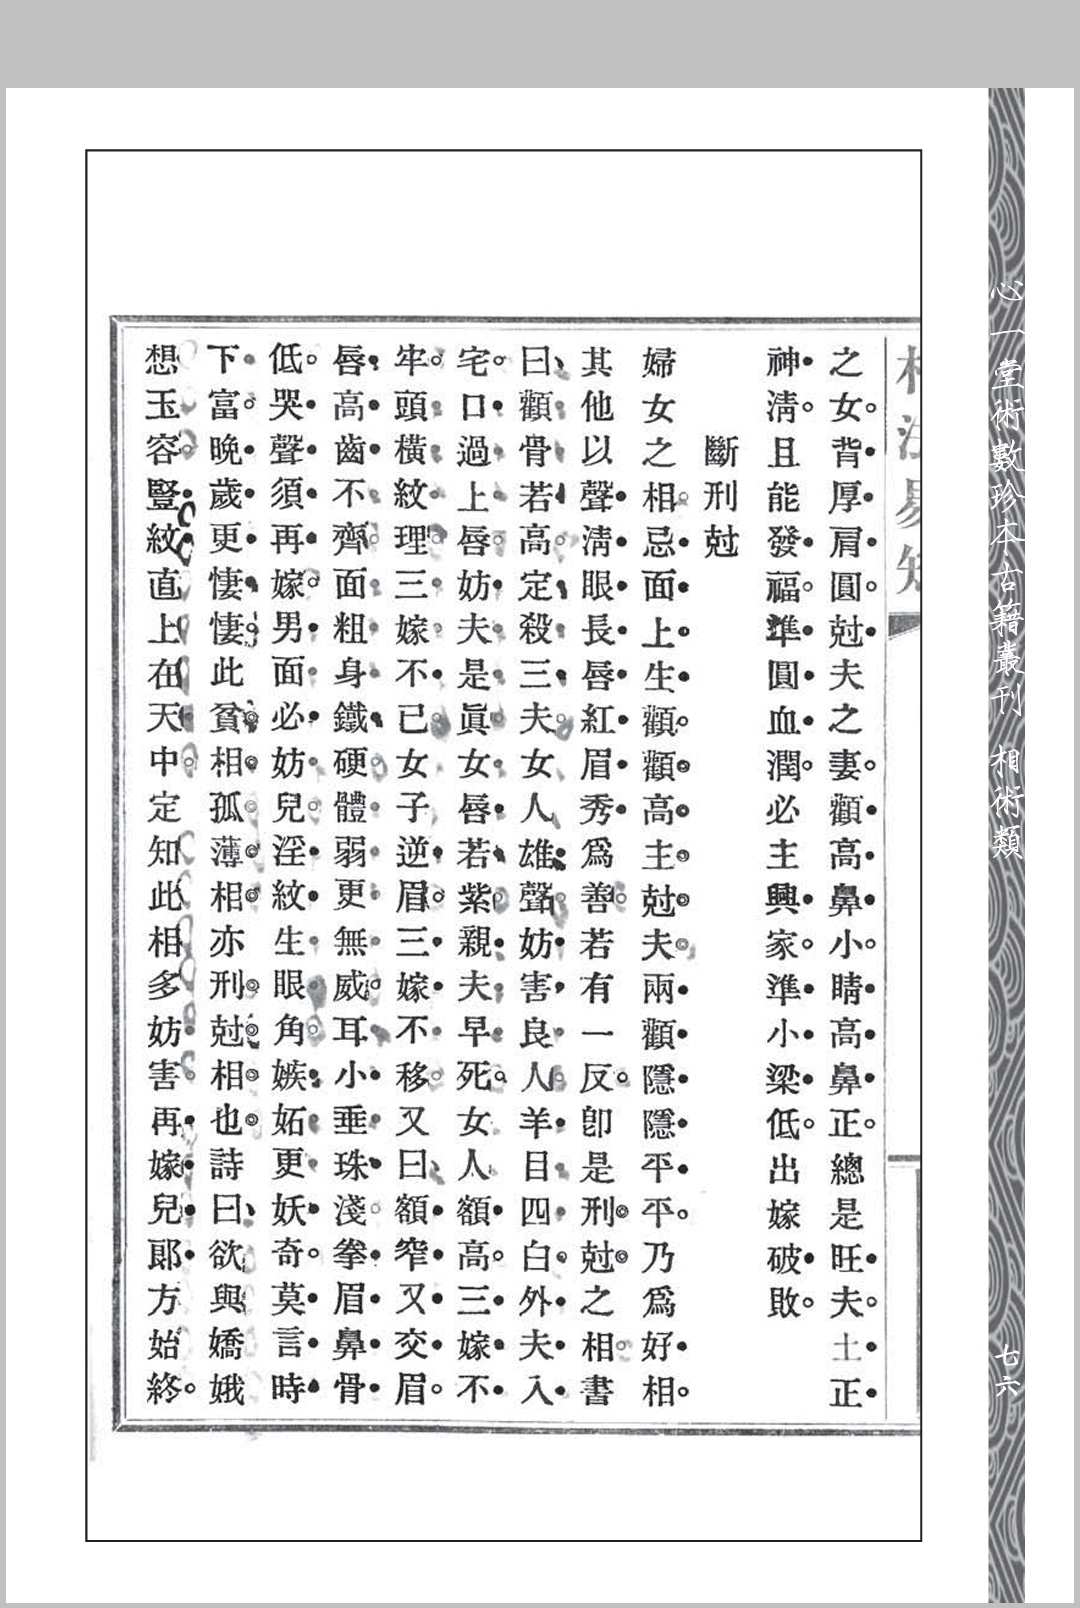 心一堂術數珍本古籍叢刊 相術類
七六
之女。背厚肩圓。尅夫之妻。顴高鼻小。睛高鼻正。總是旺夫。土正
神清。且能發福。準圓血潤。必主興家。準小梁低。出嫁破敗。
斷刑尅
婦女之相。忌面上生顴。顴高主尅夫。兩顴隱隱平平。乃爲好相。
其他以聲清眼長唇紅眉秀爲善。若有一反。卽是刑尅之相。書
曰、顴骨若高、定殺三夫。女人雄聲、妨害良人。羊目四白、外夫入
宅。口過上唇、妨夫是眞。女唇若紫、親夫早死。女人額高。三嫁不
牢。頭橫紋理。三嫁不已。女子逆眉。三嫁不移。又曰、額窄又交眉。
唇高齒不齊。面粗身鐵硬。體弱更無威。耳小垂珠淺。拳眉鼻骨
低。哭聲須再嫁。男面必妨兒。淫紋生眼角。嫉妬更妖奇。莫言時
下富。晚歲更悽悽。此貧相孤薄相亦刑尅相也。詩曰、欲與嬌娥
想玉容。豎紋直上在天中。定知此相多妨害。再嫁兒郞方始終。